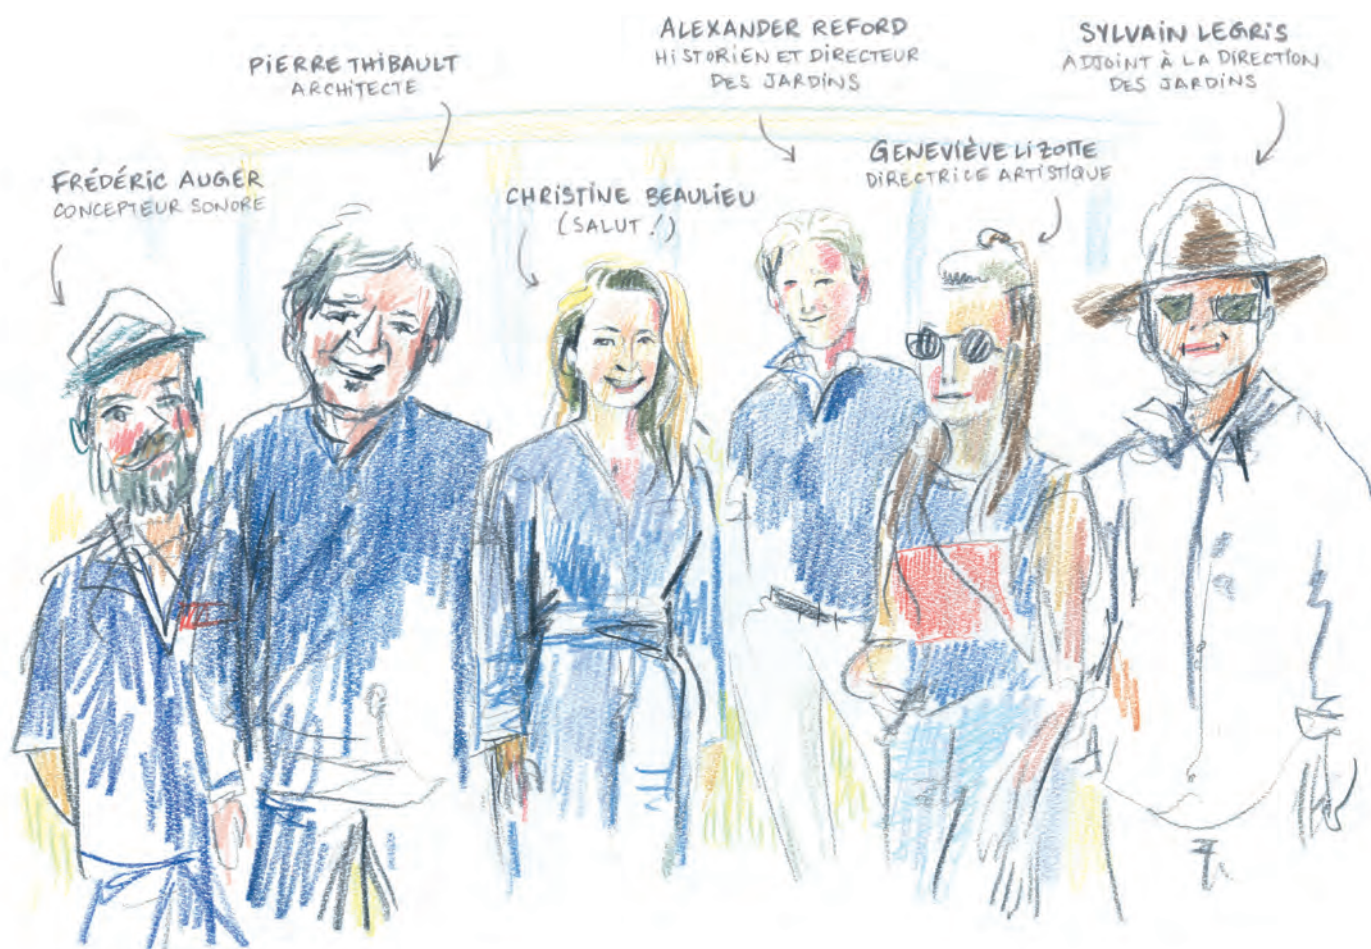 FRÉDÉRIC AUGER
CONCEPTEUR SONORE
PIERRE THIBAULT
ARCHITECTE
CHRISTINE BEAULIEU
(SALUT !)
ALEXANDER REFORD
HISTORIEN ET DIRECTEUR
DES JARDINS
GENEVIÈVE LIZOTTE
DIRECTRICE ARTISTIQUE
SYLVAIN LEGRIS
ADJOINT À LA DIRECTION
DES JARDINS